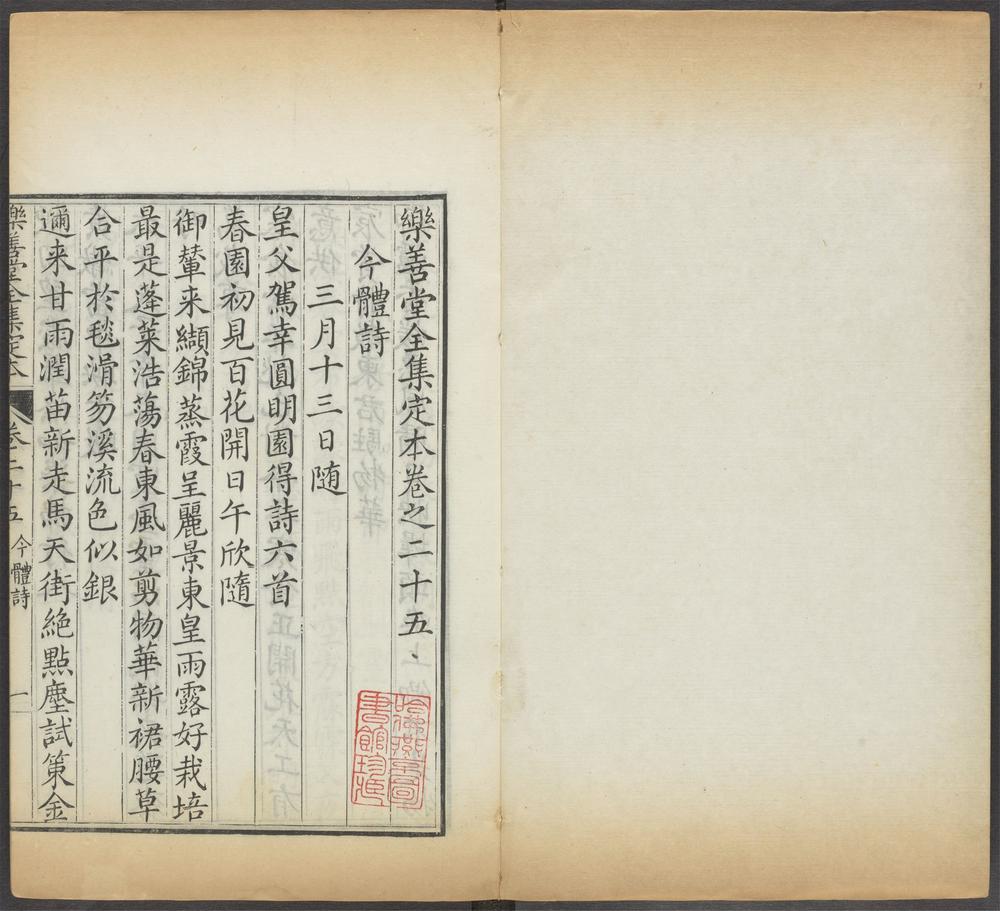 樂善堂全集定本卷之二十五
今體詩
三月十三日随
皇父駕幸圓明園得詩六首
春園初見百花開日午欣隨
御輦来纈錦蒸霞呈麗景東皇雨露好栽培
最是蓬萊浩蕩春東風如剪物華新裙腰草
合平於毯滑笏溪流色似銀
邇来甘雨潤苗新走馬天街絶點塵試策金
樂善堂全集定本 卷二十五 今體詩 一
哈佛燕京圖
書館珍藏